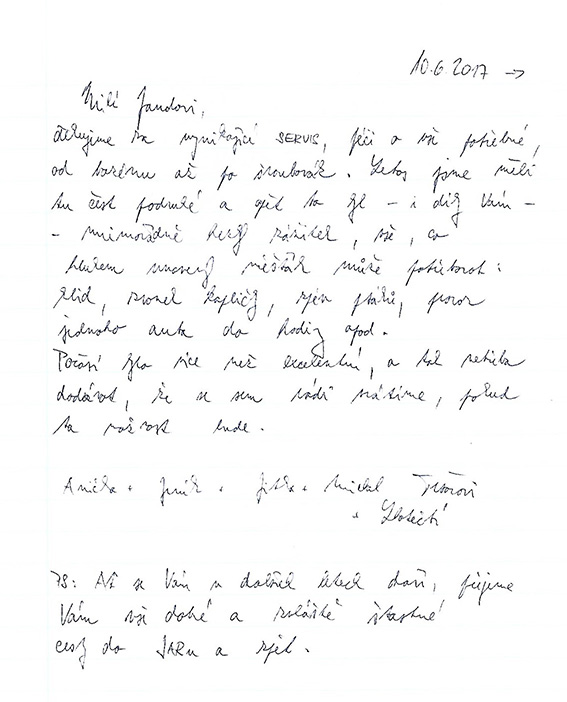 10.6.2017 →
Milí Jandovi,
děkujeme za vynikající SERVIS, péči a vše potřebné,
od bazénu až po šroubovák. Letos jsme měli
tu čest podruhé a opět to byl – i díky Vám –
– mimořádně hezký zážitek, vše, co
hlukem unavený měšťák může potřebovat:
klid, zvonek kapličky, zpěv ptáků, provoz
jednoho auta do hodiny apod.
Počasí bylo více než excelentní, a tak netřeba
dodávat, že se sem rádi vrátíme, pokud
ta možnost bude.
Anička + Jeník + Jitka + Michal
+
PS: Ať se Vám v dalších letech daří, přejeme
Vám vše dobré a zvláště šťastné
cesty do JARu a zpět.